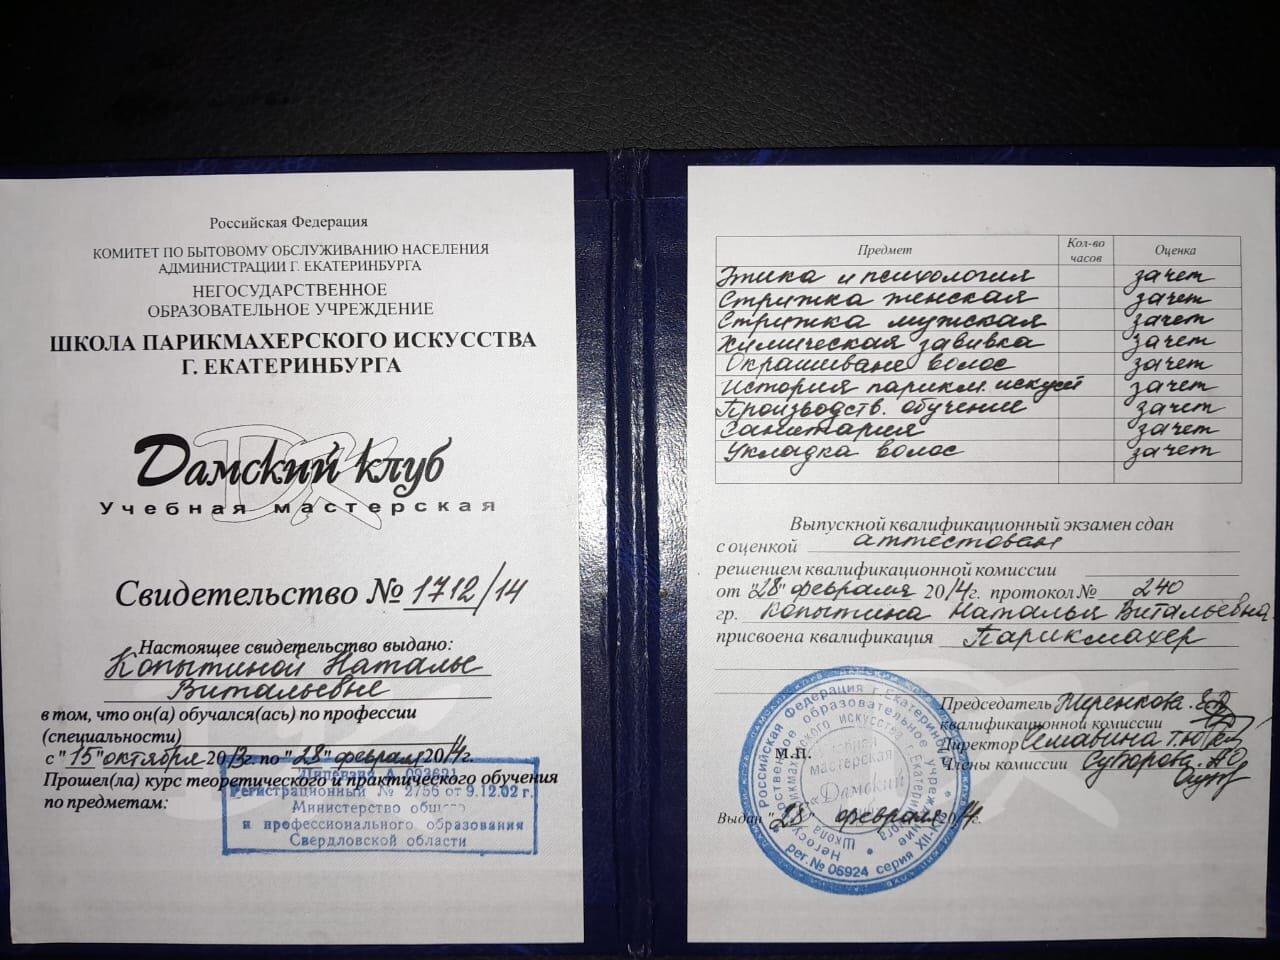 Российская Федерация
КОМИТЕТ ПО БЫТОВОМУ ОБСЛУЖИВАНИЮ НАСЕЛЕНИЯ
АДМИНИСТРАЦИИ Г. ЕКАТЕРИНБУРГА
НЕГОСУДАРСТВЕННОЕ
ОБРАЗОВАТЕЛЬНОЕ УЧРЕЖДЕНИЕ
ШКОЛА ПАРИКМАХЕРСКОГО ИСКУССТВА
Г. ЕКАТЕРИНБУРГА
Дамский клуб
Учебная мастерская
Свидетельство № 1712/14
Настоящее свидетельство выдано:
Копытиной Наталье
Витальевне
в том, что он(а) обучался(ась) по профессии
(специальности)
с "15" октября 2013г. по "28" февраля 2014г.
Прошел(ла) курс теоретического и практического обучения
по предметам:
Лицензия А 093691
Регистрационный № 2756 от 9.12.02 г.
Министерство общего
и профессионального образования
Свердловской области
Предмет Кол-во часов Оценка
Этика и психология зачет
Стрижка женская зачет
Стрижка мужская зачет
Химическая завивка зачет
Окрашиване волос зачет
История парикм. искусст зачет
Производств. обучение зачет
Санитария зачет
Укладка волос зачет
Выпускной квалификационный экзамен сдан
с оценкой аттестован
решением квалификационной комиссии
от "28" февраля 2014г. протокол № 240
гр. Копытина Наталья Витальевна
присвоена квалификация Парикмахер
Председатель
квалификационной комиссии
Директор Семавина Т.Ю.
Члены комиссии
М.П.
Выдан "28" февраля 2014г.
Российская Федерация г. Екатеринбург
Негосударственное образовательное учреждение
Школа парикмахерского искусства г. Екатеринбурга
учебная
мастерская
«Дамский
рег. № 05924 серия XII-